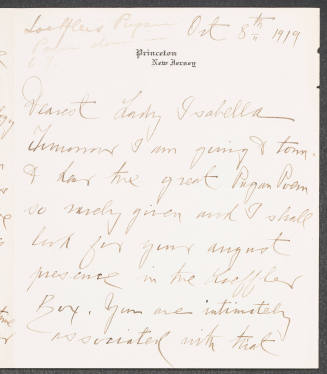 Loeffler's Pagan
Poem
Oct 8th 1919
Princeton
New Jersey
Dearest Lady Isabella
Tomorrow I am going to town
to hear the great Pagan Poem
so rarely given and I shall
look for your august
presence in the Loeffler
Box. You are intimately
associated with that